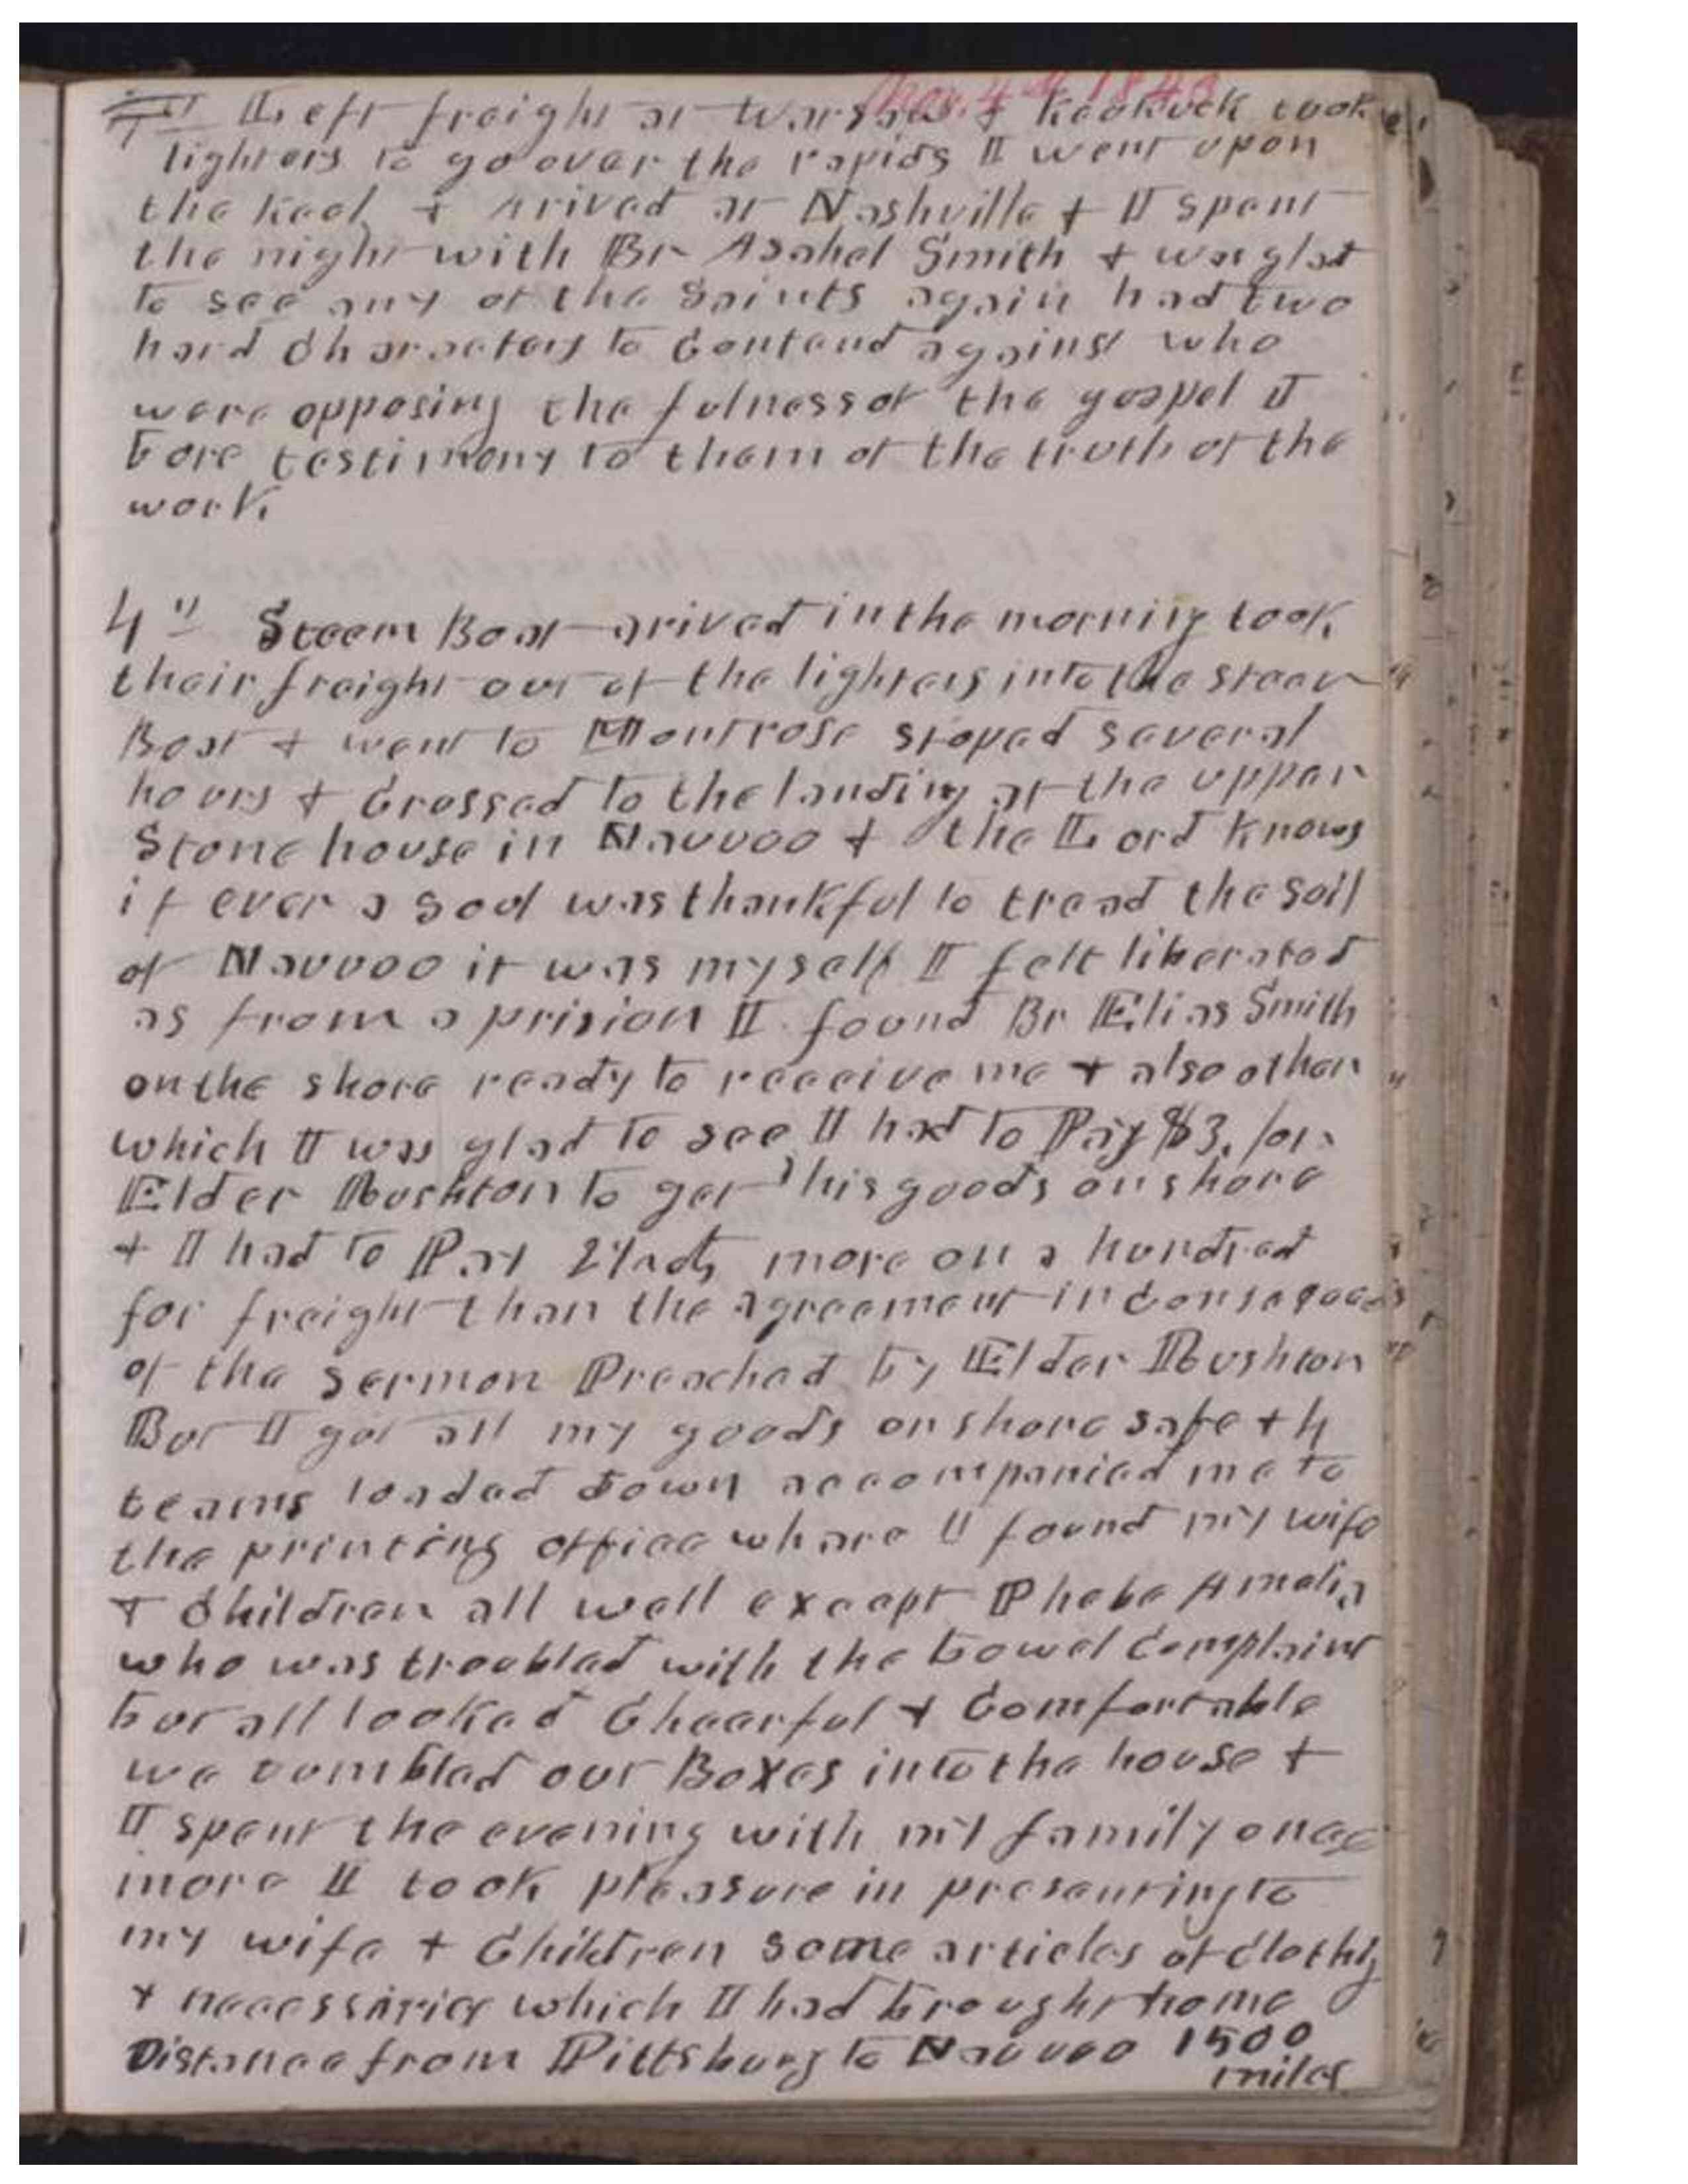 Nov. 4th 1843
Left freight at Warsaw & Keokuck took
lighters to go over the rapids I went upon
the keel & arived at Nashville & I spent
the night with Br Asahel Smith & was glad
to see any of the Saints again had two
hard Characters to Contend against who
were opposing the fulness of the gospel I
bore testimony to them of the truth of the
work
4" Steem Boat arived in the morning took
their freight out of the lighters into the steam
Boat & went to Montrose stoped several
hours & Crossed to the landing at the upper
Stone house in Nauvoo & the Lord knows
if ever a soul was thankful to tread the soil
of Nauvoo it was myself I felt liberated
as from a prision I found Br Elias Smith
on the shore ready to receeive me & also other
which I was glad to see I had to Pay $3. for
Elder Rushton to get his goods on shore
& I had to Pay more on a hundred
for freight than the agreement in
of the sermon Preached by Elder Rushton
But I got all my goods on shore safe & 4
teams loaded down accompanied me to
the printing office where I found my wife
& Children all well except Phebe Amelia
who was troubled with the bowel Complaint
but all looked Cheerful & Comfortable
we tumbled our Boxes into the house &
I spent the evening with my family once
more I took pleasure in presenting to
my wife & Children some articles of Clothig
& necessaries which I had brought home
Distance from Pittsburg to Nauvoo 1500
miles